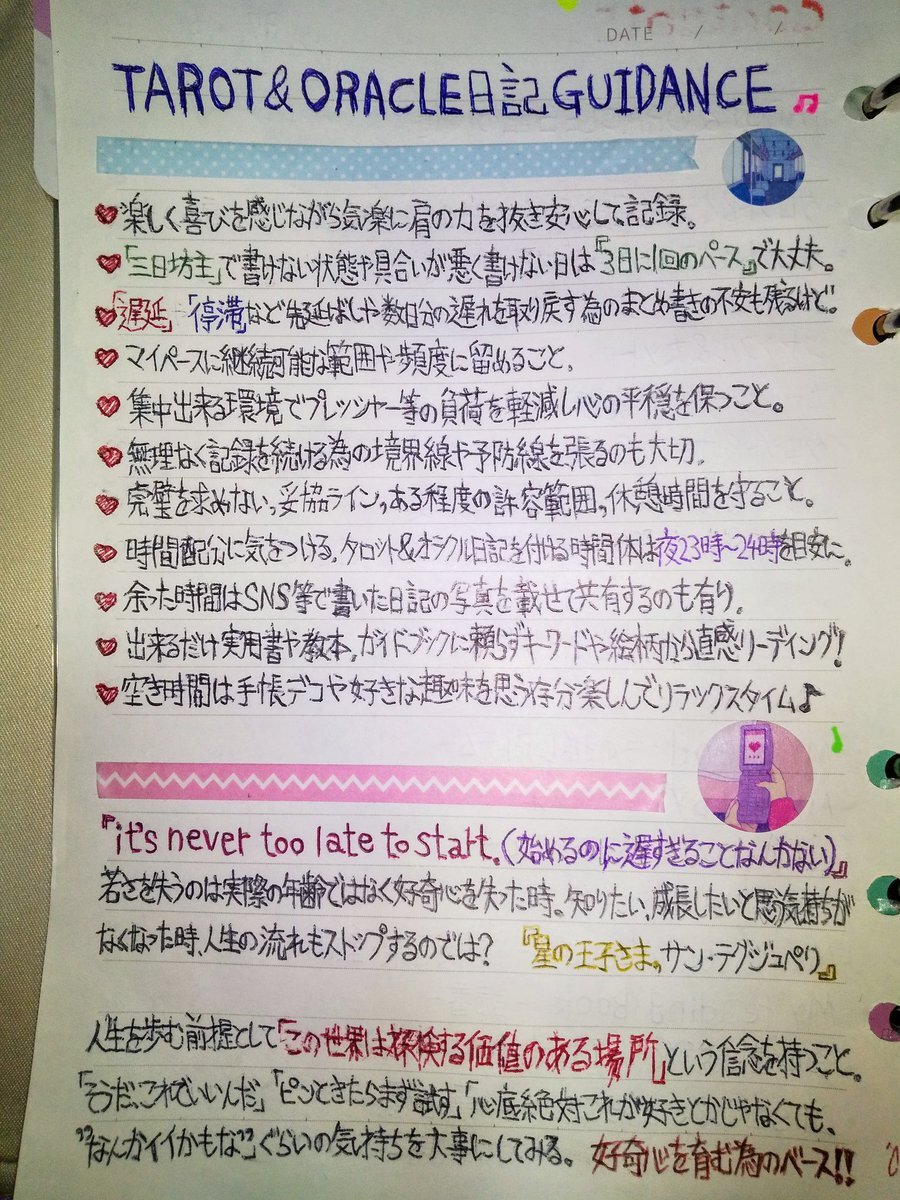 DATE / /
TAROT&ORACLE日記GUIDANCE♫
♥楽しく喜びを感じながら気楽に肩の力を抜き安心して、記録。
♥「三日坊主」で書けない状態や具合いが悪く書けない日は『3日に1回のペース』で大丈夫。
♥「遅延」「停滞」など先延ばしや数日分の遅れを取り戻す為のまとめ書きの不安も残るけど。
♥マイペースに継続可能な範囲や頻度に留めること。
♥集中出来る環境でプレッシャー等の負荷を軽減し心の平穏を保つこと。
♥無理なく記録を続ける為の境界線や予防線を張るのも大切。
♥完璧を求めない、妥協ライン、ある程度の許容範囲、休憩時間を守ること。
♥時間配分に気をつける。タロット&オラクル日記を付ける時間体は夜23時〜24時を目安に。
♥余った時間はSNS等で書いた日記の写真を載せて共有するのも有り。
♥出来るだけ実用書や教本、ガイドブックに頼らずキーワードや絵柄から直感リーディング!
♥空き時間は手帳デコや好きな趣味を思う存分楽しんでリラックスタイム♪
『it's never too late to start.(始めるのに遅すぎることなんかない)』
若さを失うのは実際の年齢ではなく好奇心を失った時。知りたい、成長したいと思う気持ちが
なくなった時、人生の流れもストップするのでは? 『星の王子さま。サン・テグジュペリ』
人生を歩む前提として「この世界は探検する価値のある場所」という信念を持つこと。
「そうだ、これでいいんだ」「ピンときたらまず試す」「心底絶対これが好きとかじゃなくても、
"なんかイイかもな"」ぐらいの気持ちを大事にしてみる。 好奇心を育む為のベース!!